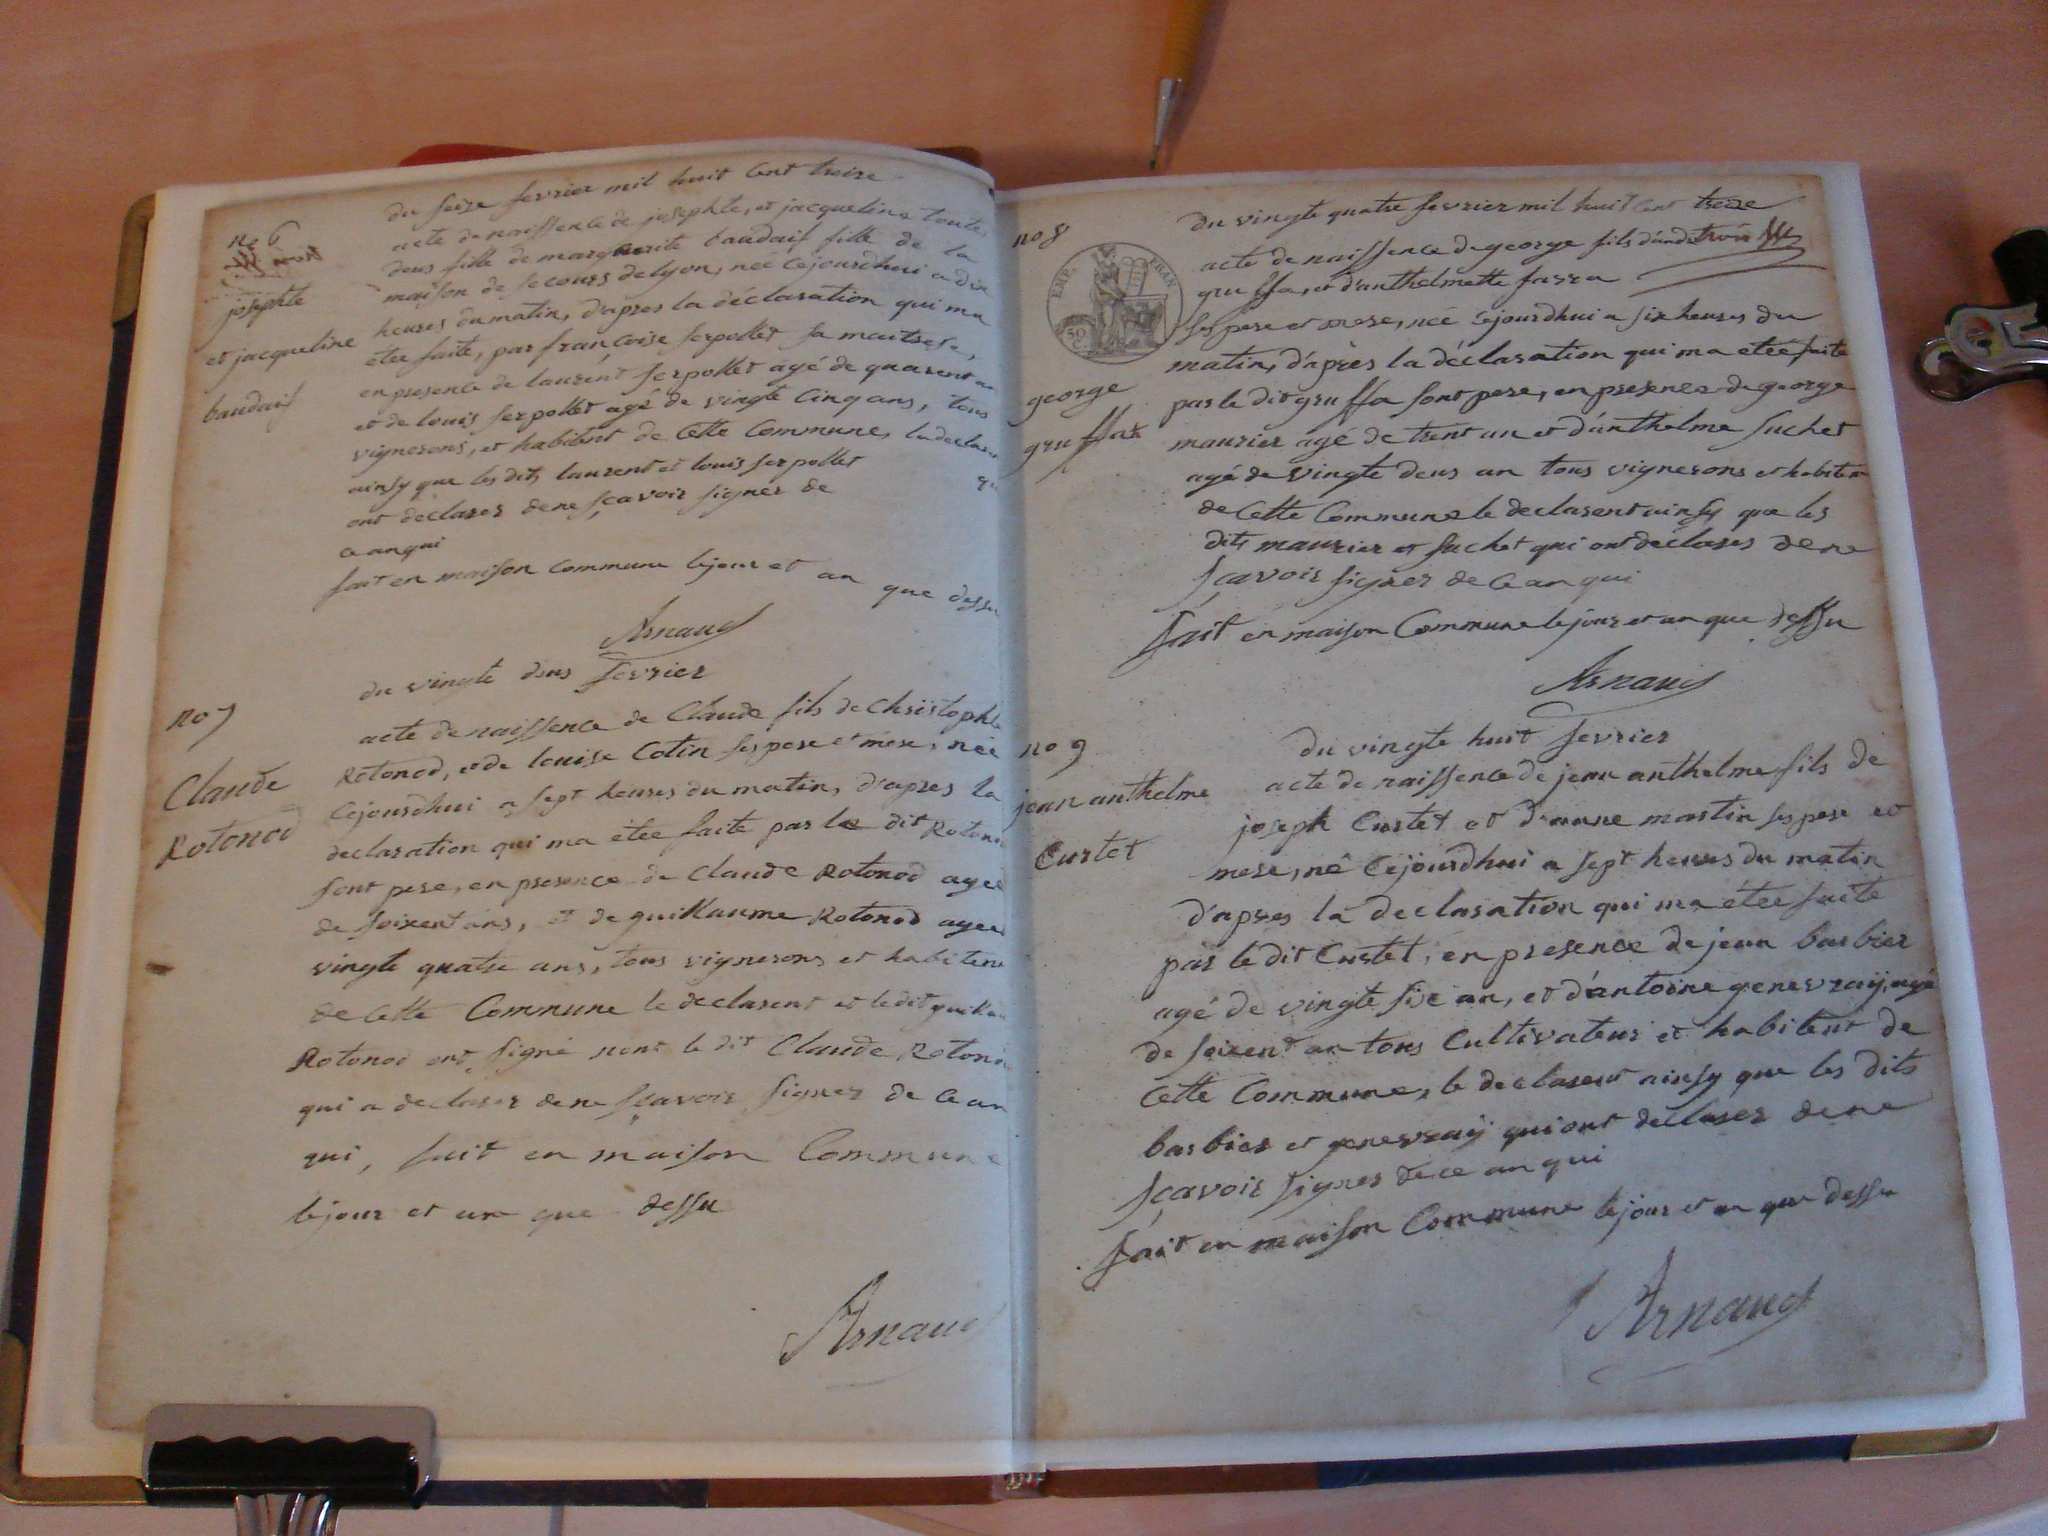 du seize fevrier mil huit cent treize
no 6
acte de naissence de josephte, et jacqueline toute
deus fille de marguerite baudaif fille de la
maison de secours de lyon, née cejourdhui a dix
josephte
heures du matin, d'apres la déclaration qui ma
et jacqueline
etee faite, par françoise serpollet sa maitresse,
en presence de laurent serpollet agé de quarent an
baudaif
et de louis serpollet agé de vingte cinq ans, tous
vignerons, et habitent de cette commune, la declarent
ainsy que les dits laurent et louis serpollet qui
ont declarer de ne sçavoir signer de
ce anqui
fait en maison commune lejour et an que dessu
Arnaud
du vingte deus fevrier
no 7
acte de naissence de Claude fils de Christophle
Rotonod, et de louise Cotin ses pere et mere, née
Claude
cejourdhui a sept heures du matin, d'apres la
Rotonod
declaration qui ma etee faite par le dit Rotonod
sont pere, en presence de Claude Rotonod agée
de soixent ans, et de guillaume Rotonod agée
vingte quatre ans, tous vignerons et habitent
de cette Commune le declarent et le dit guillau
Rotonod ont signé nont le dit Claude Rotonod
qui a declarer de ne sçavoir signer de ce an
qui, fait en maison Commune
lejour et an que dessu
Arnaud
du vingte quatre fevrier mil huit cent treize
no 8
acte de naissence de george fils d'andé trois
gruffa, et d'anthelmette farra
EMP. FRAN
50
ses pere et mere, née cejourdhui a six heures du
matin, d'après la déclaration qui ma etée faite
george
par le dit gruffa sont pere, en presence de george
gruffat
maurier agé de trent an et d'anthelme suchet
agé de vingte deus an tous vignerons et habiten
de cette Commune le declarent ainsy que les
dits maurier et suchet qui ont déclarés de ne
sçavoir signer de ce an qui
fait en maison Commune lejour et an que dessu
Arnaud
du vingte huit fevrier
no 9
acte de naissence de jean anthelme fils de
jean anthelme
joseph Curtet et d'anne martin ses pere et
Curtet
mere, né cejourdhui a sept heures du matin
d'apres la declaration qui ma etee faite
par le dit Curtet, en presence de jean barbier
agé de vingte sixe an, et d'antoine genevraÿ, agé
de soixent an tous Cultivateur et habitent de
cette Commune, le declarent ainsy que les dits
barbier et genevraÿ qui ont declarer de ne
sçavoir signer de ce an qui
fait en maison Commune lejour et an que dessu
Arnaud